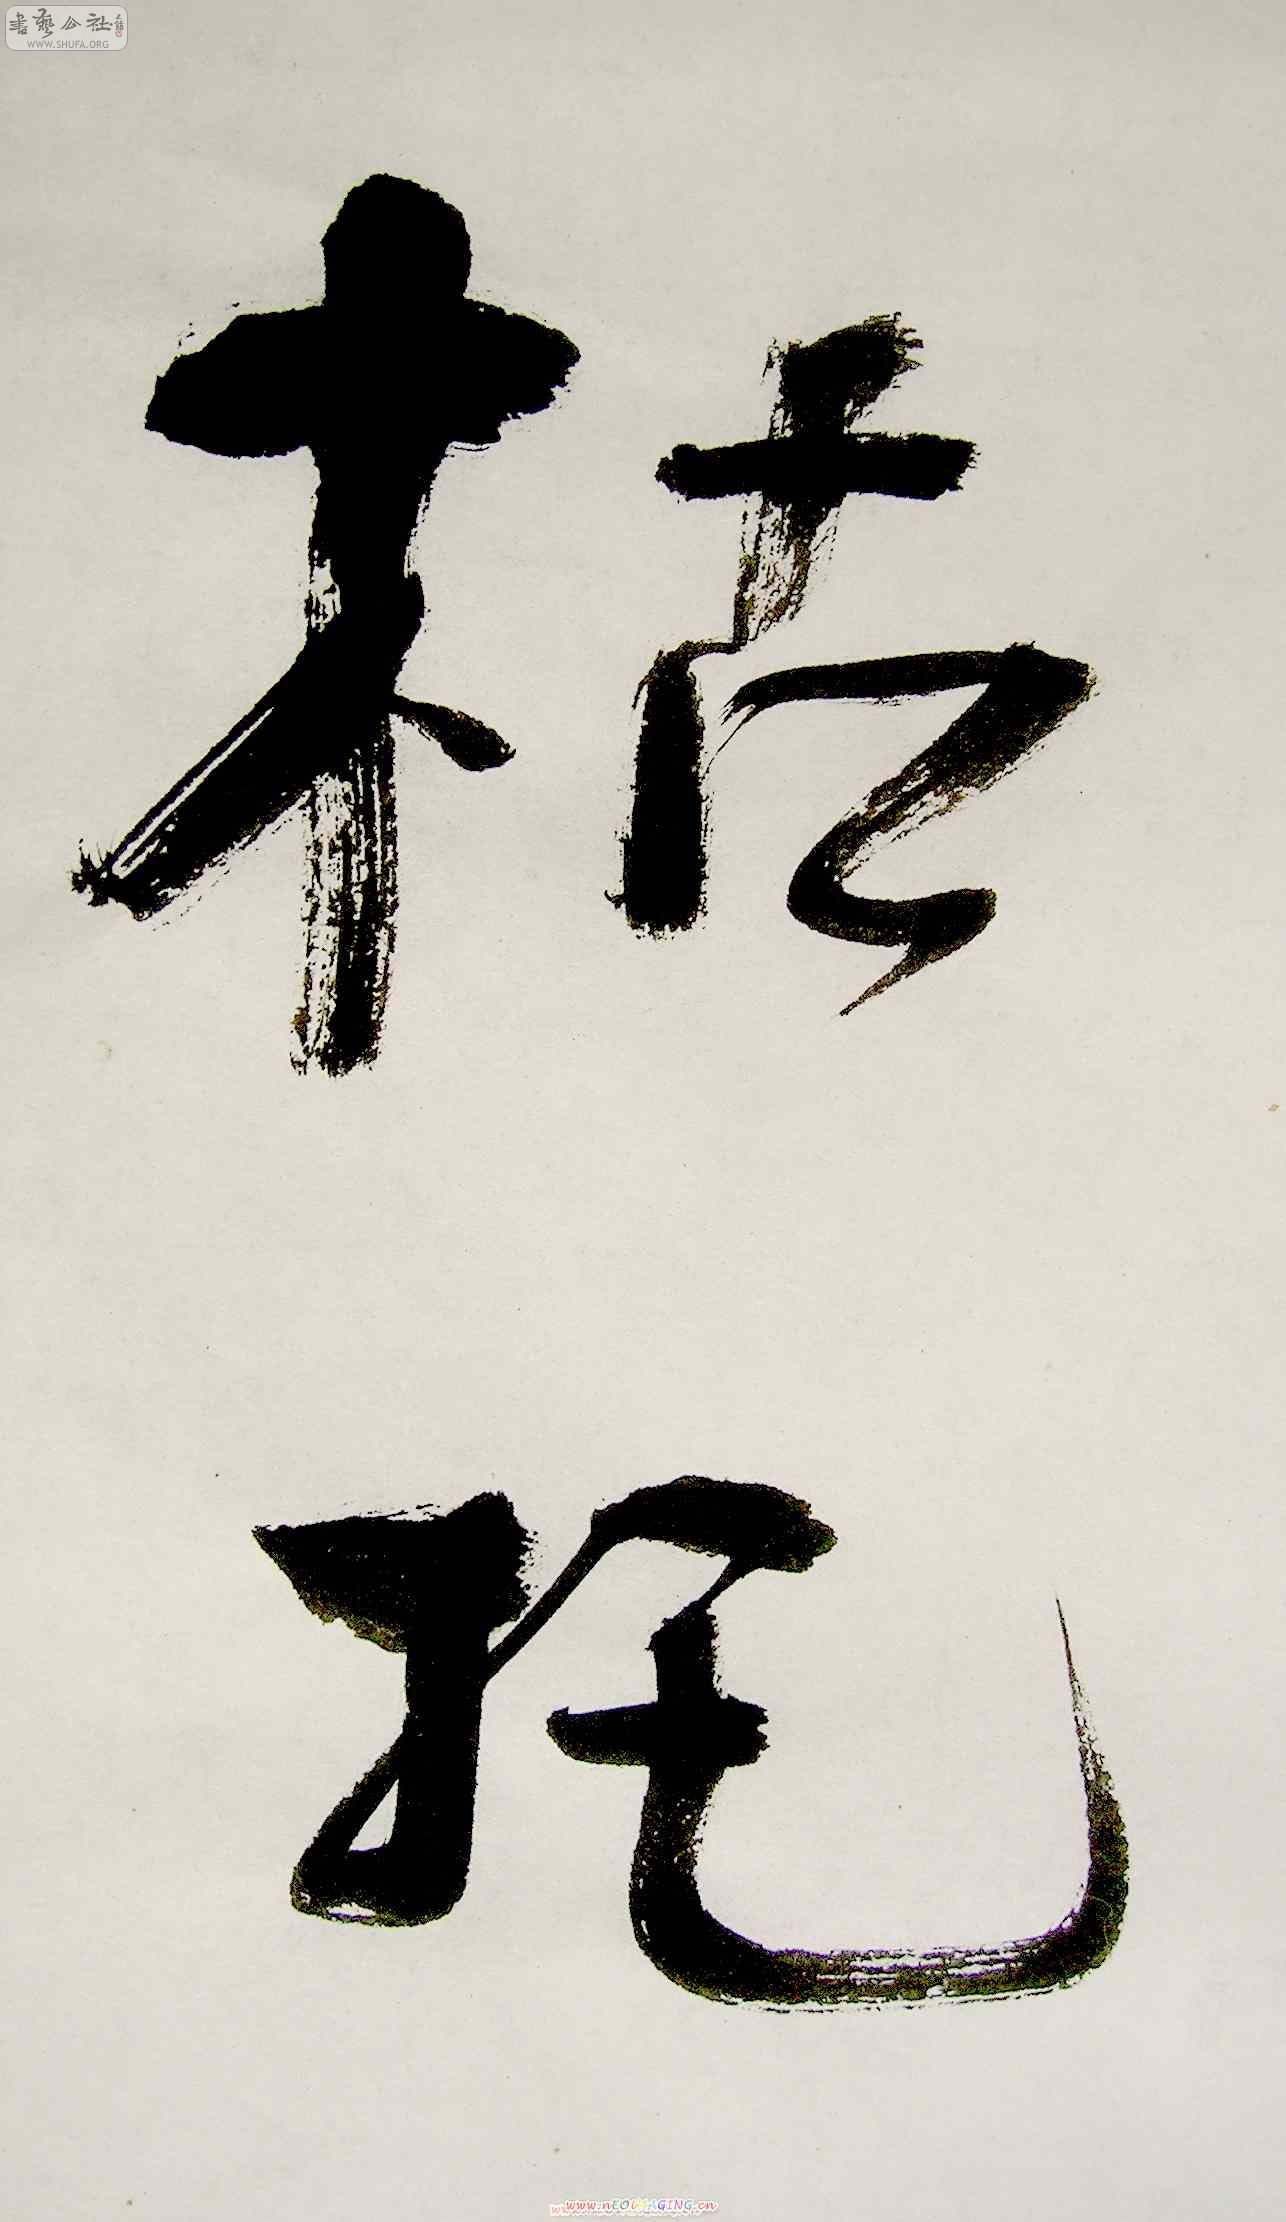 書藝公社
WWW.SHUFA.ORG
枯
托
www.nEOiMAGING.cn